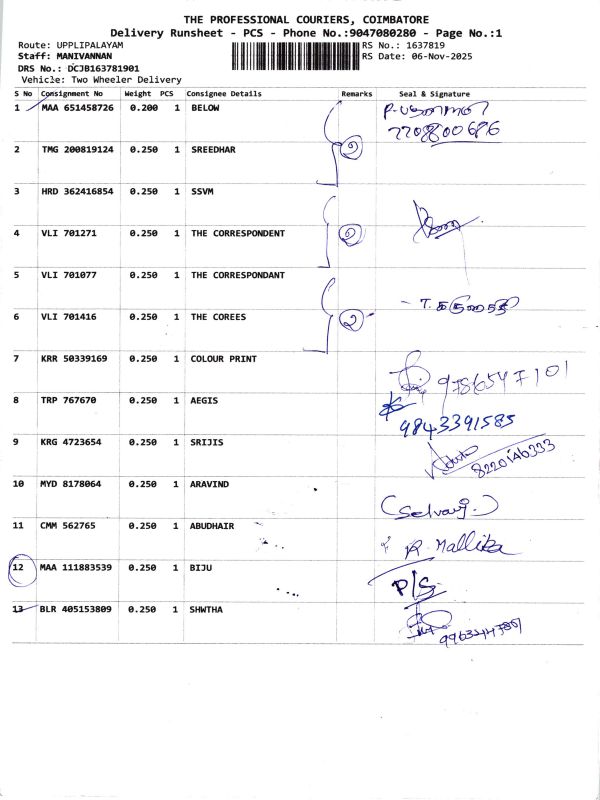 THE PROFESSIONAL COURIERS, COIMBATORE
Delivery Runsheet - PCS - Phone No.:9047080280 - Page No.:1
Route: UPPLIPALAYAM RS No.: 1637819
Staff: MANIVANNAN RS Date: 06-Nov-2025
DRS No.: DCJB163781901
Vehicle: Two Wheeler Delivery
S No Consignment No Weight PCS Consignee Details Remarks Seal & Signature
1 MAA 651458726 0.200 1 BELOW
2 TMG 200819124 0.250 1 SREEDHAR
3 HRD 362416854 0.250 1 SSVM
4 VLI 701271 0.250 1 THE CORRESPONDENT
5 VLI 701077 0.250 1 THE CORRESPONDANT
6 VLI 701416 0.250 1 THE COREES
7 KRR 50339169 0.250 1 COLOUR PRINT
8 TRP 767670 0.250 1 AEGIS 9843391585
9 KRG 4723654 0.250 1 SRIJIS 8220146333
10 MYD 8178064 0.250 1 ARAVIND (Selvaraj.)
11 CMM 562765 0.250 1 ABUDHAIR R. Mallika
12 MAA 111883539 0.250 1 BIJU P/S
13 BLR 405153809 0.250 1 SHWTHA